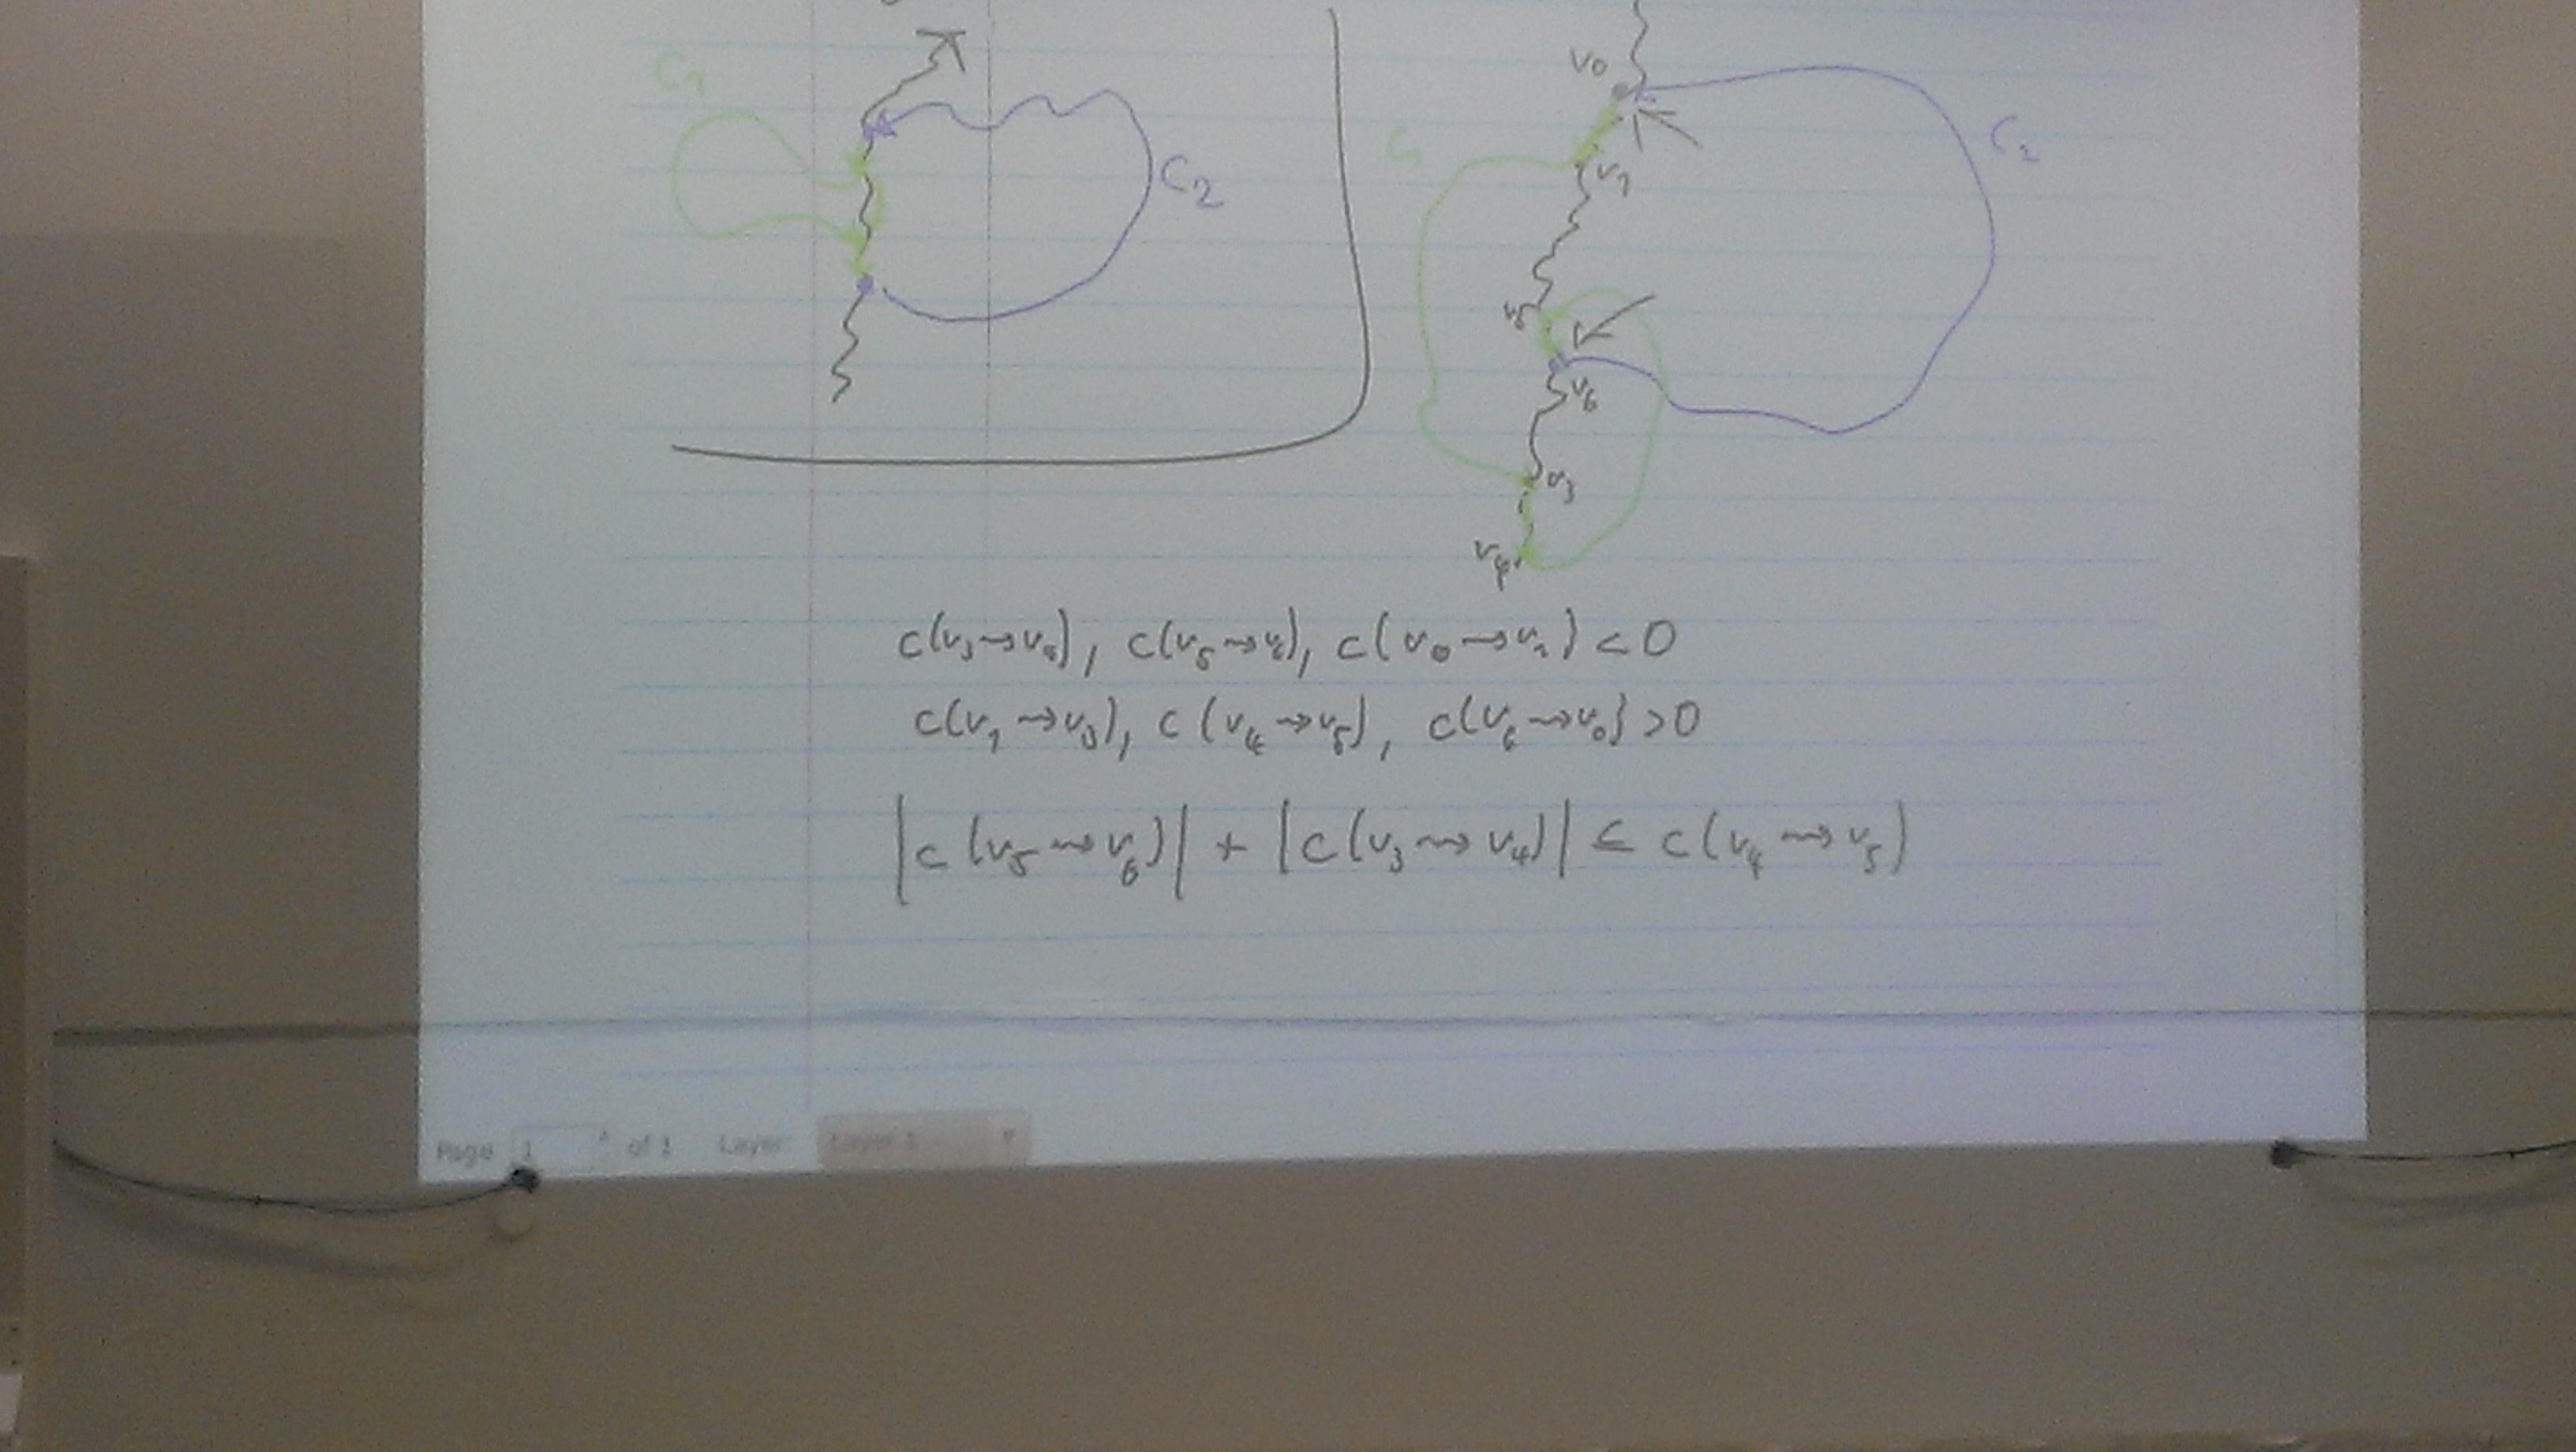 C₁
C₂
v₀
C₁
C₂
v₁
v₅
v₆
v₃
v₄
c(v₃⇝v₄), c(v₅⇝v₆), c(v₀⇝v₁) < 0
c(v₁⇝v₃), c(v₄⇝v₅), c(v₆⇝v₀) > 0
|c(v₅⇝v₆)| + |c(v₃⇝v₄)| ≤ c(v₄⇝v₅)
Page 1 of 1 Layer: Layer 1